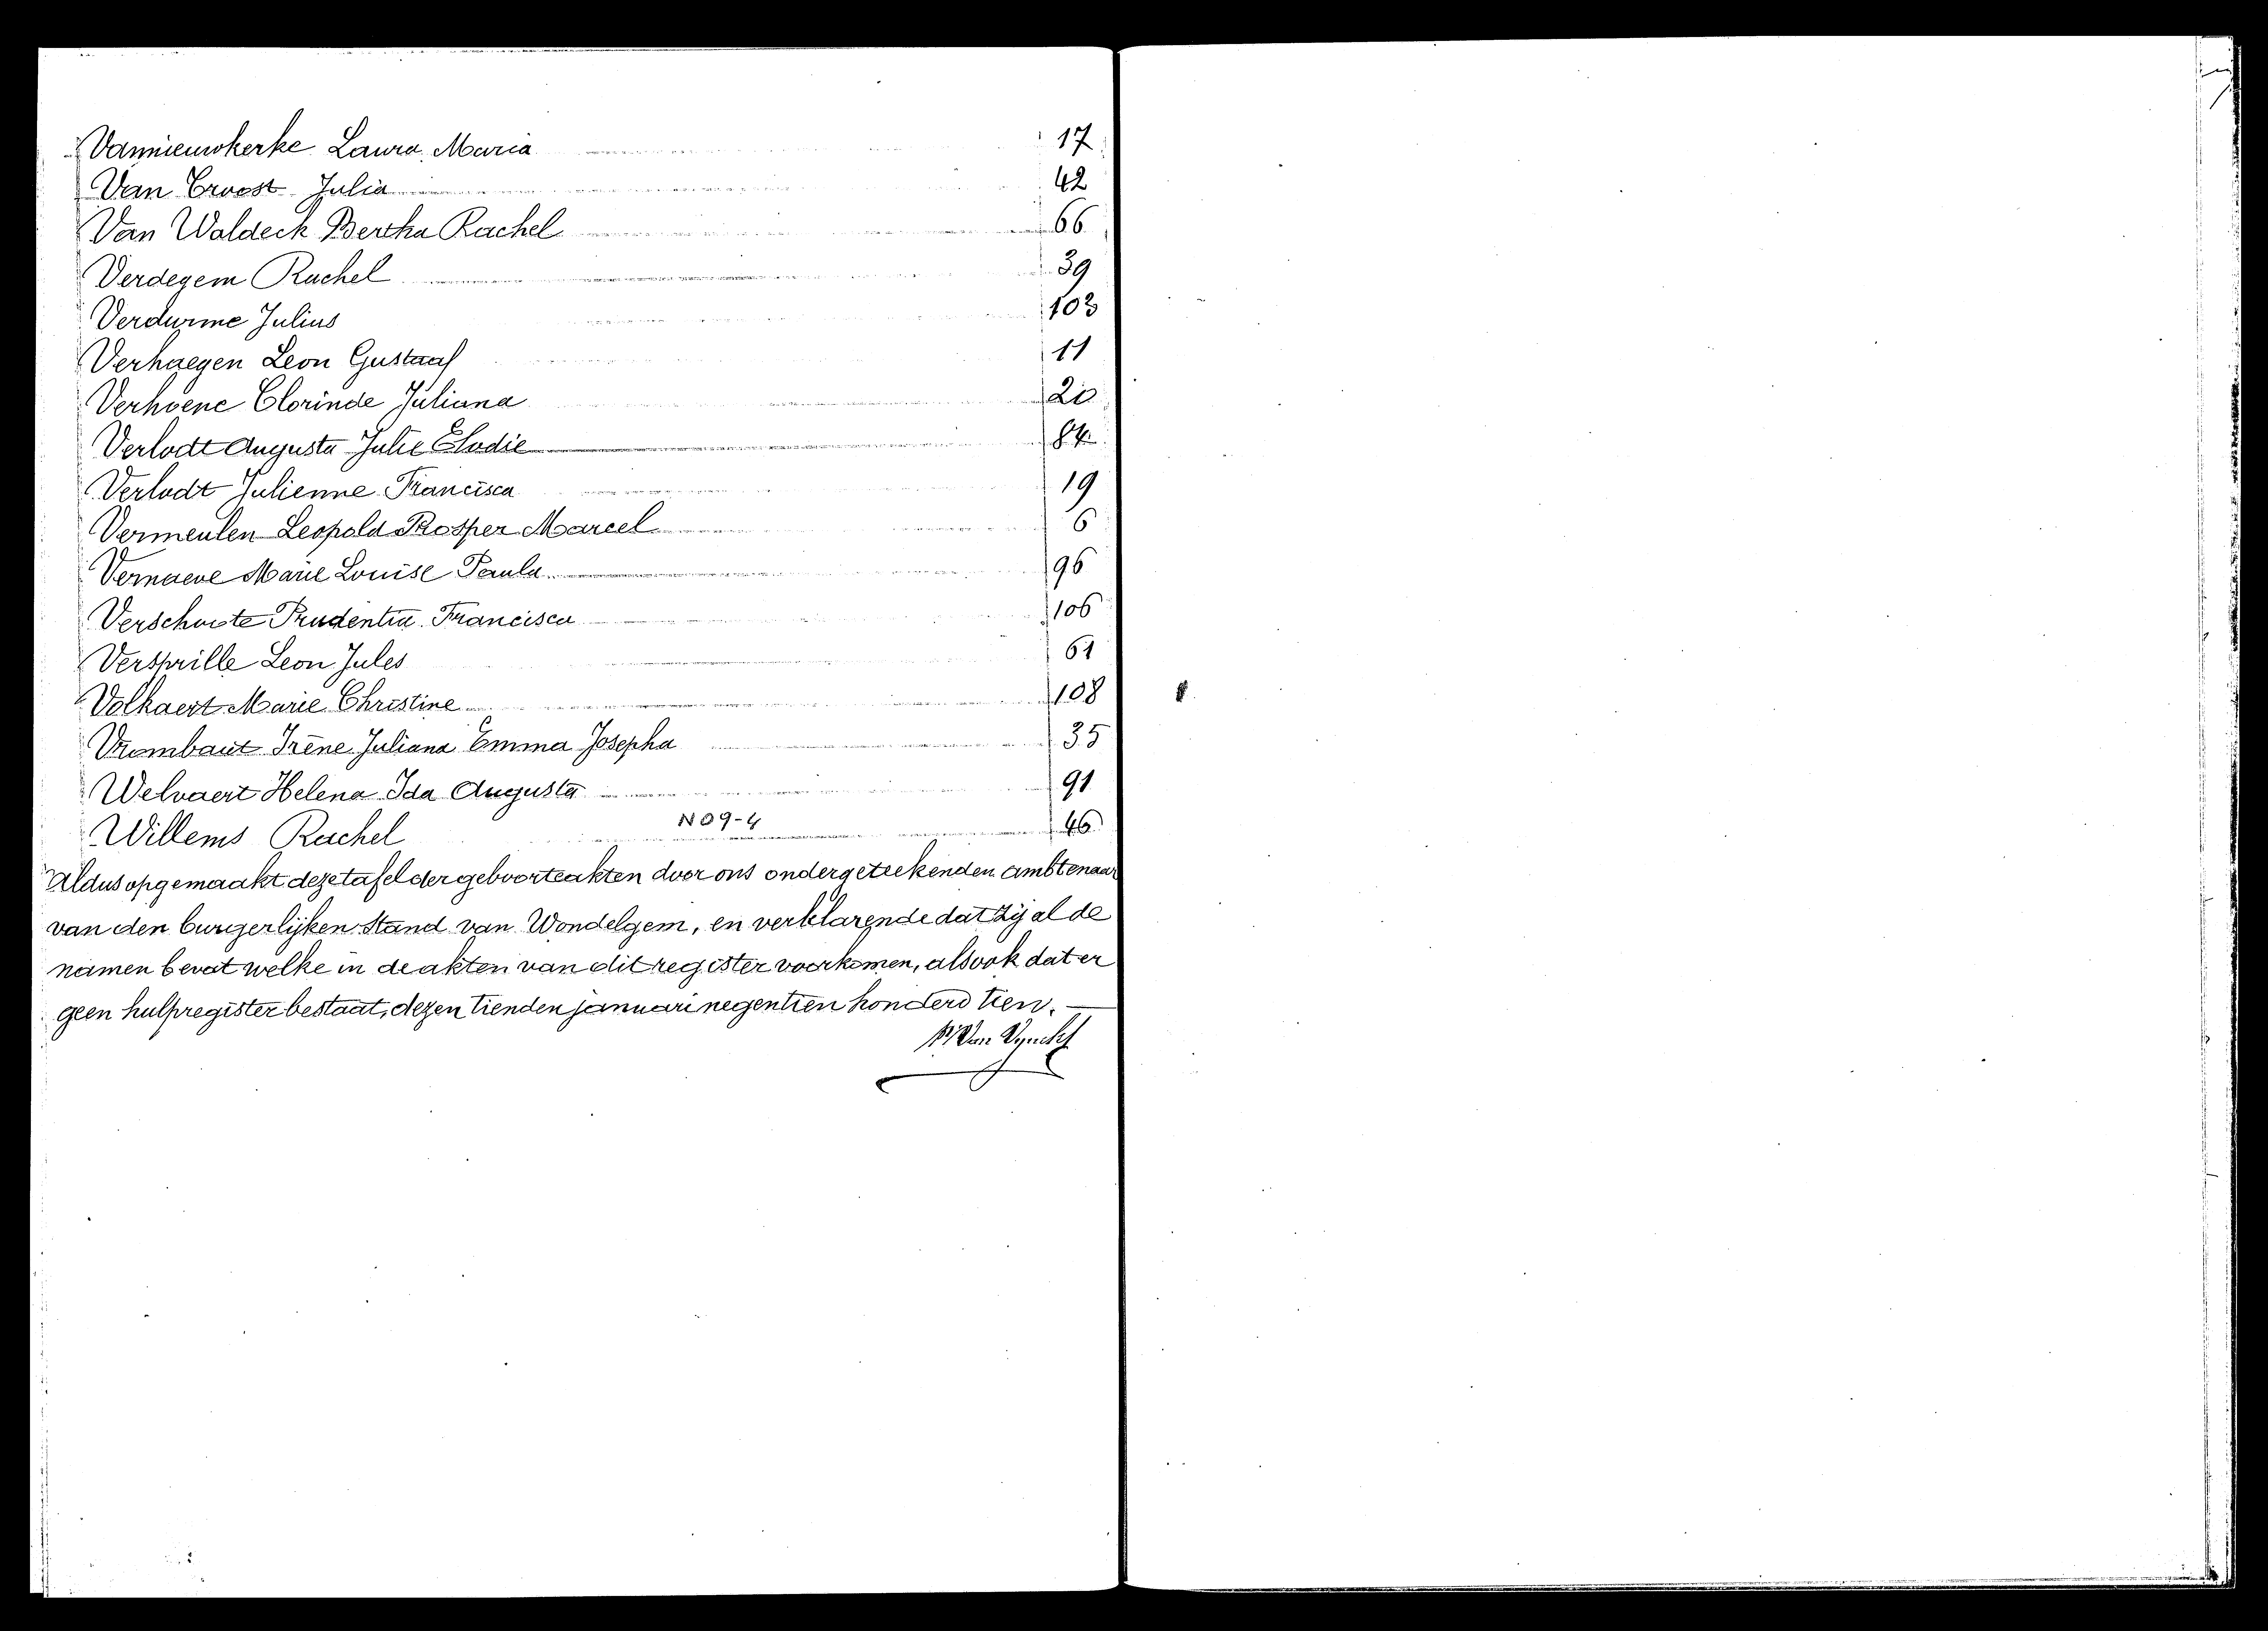 Vannieuwkerke Laura Maria 17
Van Ervost Julia 42
Van Waldeck Bertha Rachel 66
Verdegem Rachel 39
Verdurme Julius 103
Verhaegen Leon Gustaaf 11
Verhoene Clorinde Juliana
Verlodt Augusta Julie Elodie 84
Verlodt Julienne Francisca 19
Vermeulen Leopold Prosper Marcel 6
Vernaeve Marie Louise Paula 96
Verschuste Prudentia Francisca 106
Versprille Leon Jules 61
Volkaert Marie Christine 108
Vrombaut Irène Juliana Emma Josepha 35
Welvaert Helena Ida Augusta 91
Willems Rachel N 09-4 46
Aldus opgemaakt deze tafel der geboorteakten door ons ondergeteekenden ambtenaar
van den burgerlijken stand van Wondelgem, en verklarende dat zij al de
namen bevat welke in de akten van dit register voorkomen, alsook dat er
geen hulpregister bestaat, dezen tienden januari negentien honderd tien.